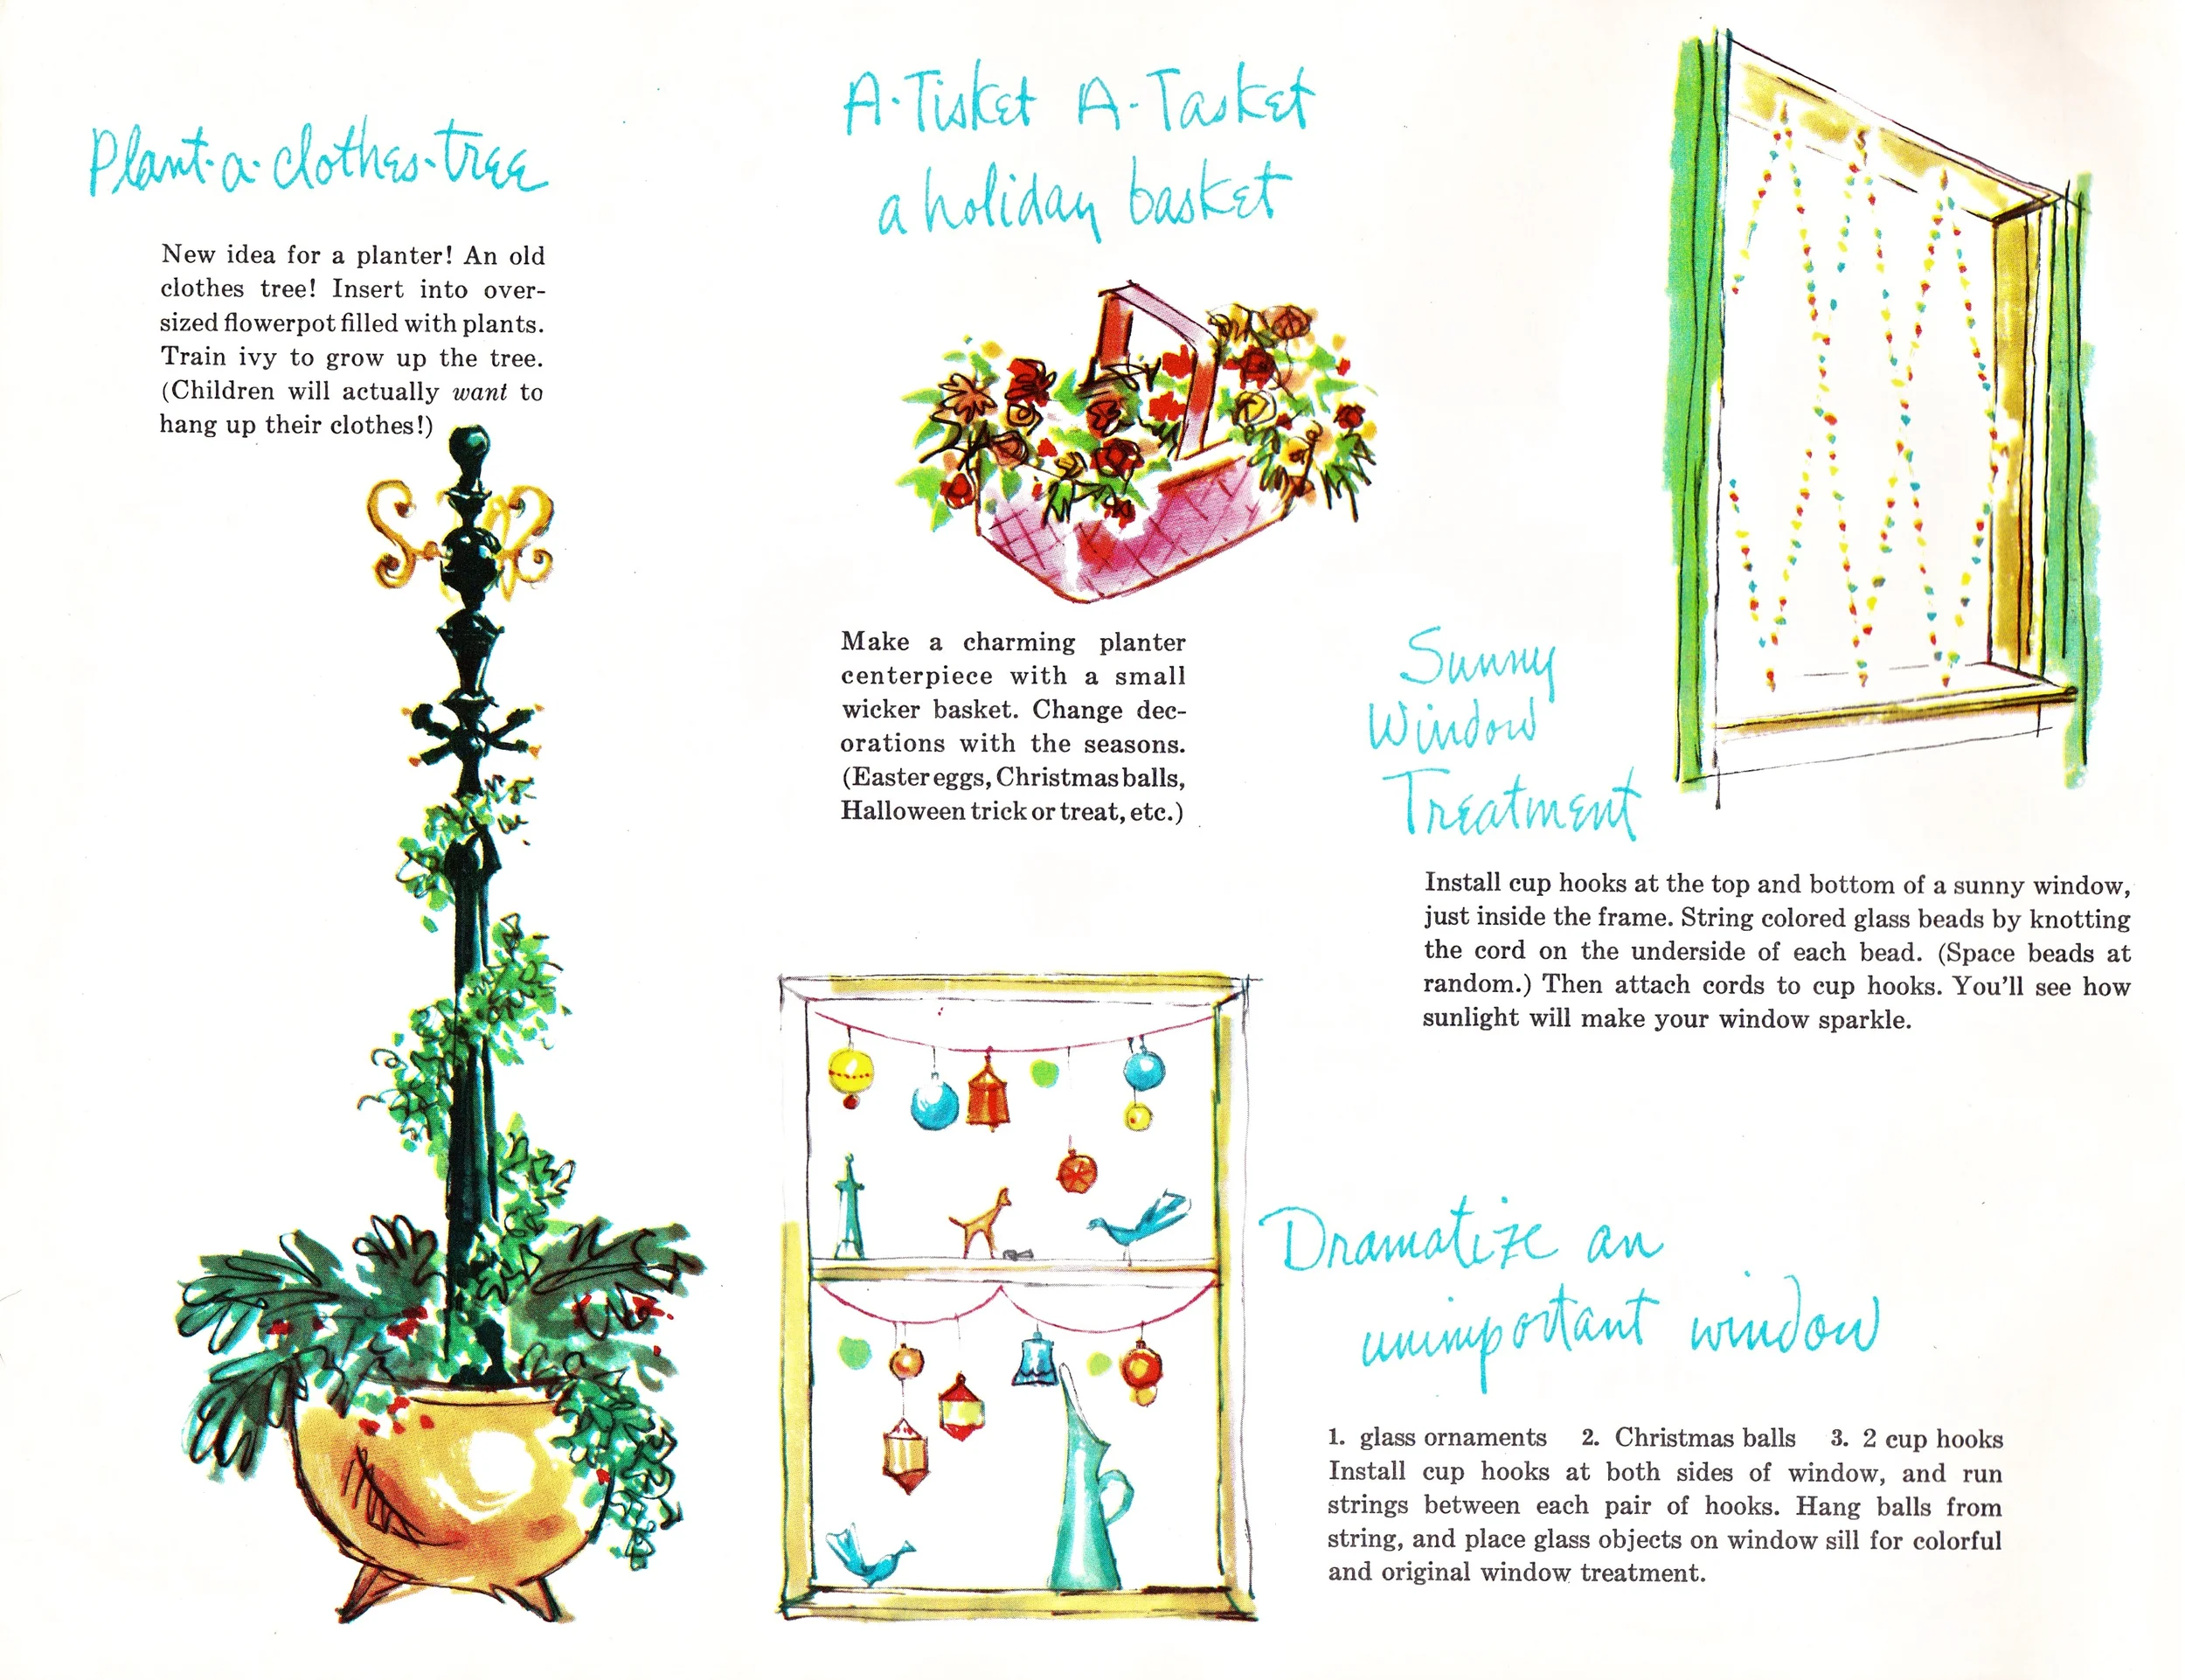 Plant-a-clothes-tree
New idea for a planter! An old
clothes tree! Insert into over-
sized flowerpot filled with plants.
Train ivy to grow up the tree.
(Children will actually want to
hang up their clothes!)
A-Tisket A-Tasket
a holiday basket
Make a charming planter
centerpiece with a small
wicker basket. Change dec-
orations with the seasons.
(Easter eggs, Christmas balls,
Halloween trick or treat, etc.)
Sunny
Window
Treatment
Install cup hooks at the top and bottom of a sunny window,
just inside the frame. String colored glass beads by knotting
the cord on the underside of each bead. (Space beads at
random.) Then attach cords to cup hooks. You'll see how
sunlight will make your window sparkle.
Dramatize an
unimportant window
1. glass ornaments 2. Christmas balls 3. 2 cup hooks
Install cup hooks at both sides of window, and run
strings between each pair of hooks. Hang balls from
string, and place glass objects on window sill for colorful
and original window treatment.